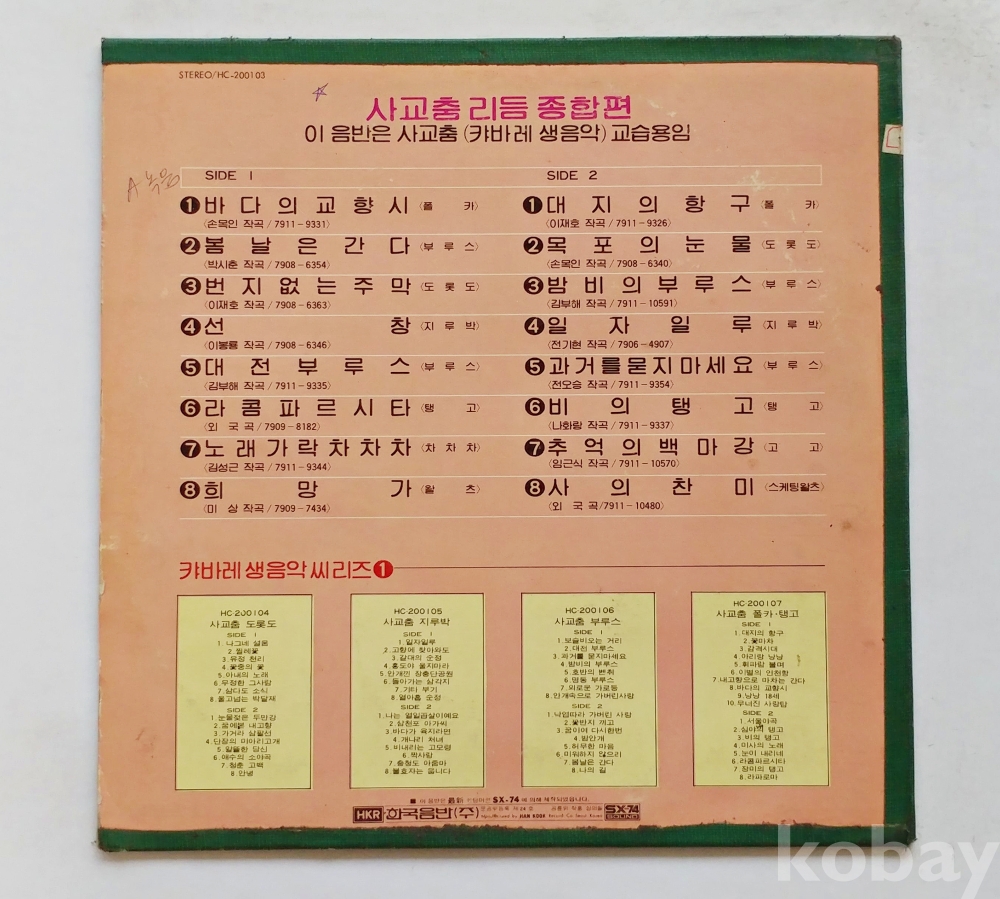 STEREO/HC-200103
사교춤 리듬 종합편
이 음반은 사교춤 (캬바레 생음악) 교습용임
A 녹음
SIDE 1
❶ 바다의 교향시 〈폴카〉
(손목인 작곡 / 7911-9331)
❷ 봄날은 간다 〈부루스〉
(박시춘 작곡 / 7908-6354)
❸ 번지없는 주막 〈도롯도〉
(이재호 작곡 / 7908-6363)
❹ 선창 〈지루박〉
(이봉룡 작곡 / 7908-6346)
❺ 대전부루스 〈부루스〉
(김부해 작곡 / 7911-9335)
❻ 라콤파르시타 〈탱고〉
(외국곡 / 7909-8182)
❼ 노래가락차차차 〈차차차〉
(김성근 작곡 / 7911-9344)
❽ 희망가 〈왈츠〉
(미상 작곡 / 7909-7434)
SIDE 2
❶ 대지의 항구 〈폴카〉
(이재호 작곡 / 7911-9326)
❷ 목포의 눈물 〈도롯도〉
(손목인 작곡 / 7908-6340)
❸ 밤비의부루스 〈부루스〉
(김부해 작곡 / 7911-10591)
❹ 일자일루 〈지루박〉
(전기현 작곡 / 7906-4907)
❺ 과거를묻지마세요 〈부루스〉
(전오승 작곡 / 7911-9354)
❻ 비의탱고 〈탱고〉
(나화랑 작곡 / 7911-9337)
❼ 추억의백마강 〈고고〉
(임근식 작곡 / 7911-10570)
❽ 사의찬미 〈스케팅왈츠〉
(외국곡 / 7911-10480)
캬바레 생음악 씨리즈❶
HC-200104
사교춤 도롯도
SIDE 1
1. 나그네 설움
2. 찔레꽃
3. 유정 천리
4. 꽃중의 꽃
5. 아내의 노래
6. 무정한 그사람
7. 삼다도 소식
8. 울고넘는 박달재
SIDE 2
1. 눈물젖은 두만강
2. 꿈에본 내고향
3. 가거라 삼팔선
4. 단장의 미아리고개
5. 알뜰한 당신
6. 애수의 소야곡
7. 청춘 고백
8. 안녕
HC-200105
사교춤 지루박
SIDE 1
1. 일자일루
2. 고향에 찾아와도
3. 갈대의 순정
4. 홍도야 울지마라
5. 안개낀 장충단공원
6. 돌아가는 삼각지
7. 기타 부기
8. 열아홉 순정
SIDE 2
1. 나는 열일곱살이에요
2. 삼천포 아가씨
3. 바다가 육지라면
4. 개나리 처녀
5. 비내리는 고모령
6. 짝사랑
7. 충청도 아줌마
8. 불효자는 웁니다
HC-200106
사교춤 부루스
SIDE 1
1. 보슬비오는 거리
2. 대전 부루스
3. 과거를 묻지마세요
4. 밤비의 부루스
5. 호반의 벤취
6. 명동 부루스
7. 외로운 가로등
8. 안개속으로 가버린사랑
SIDE 2
1. 낙엽따라 가버린 사랑
2. 꽃반지 끼고
3. 꿈이여 다시한번
4. 밤안개
5. 허무한 마음
6. 미워하지 않으리
7. 봄날은 간다
8. 나의 길
HC-200107
사교춤 폴카·탱고
SIDE 1
1. 대지의 항구
2. 꽃마차
3. 감격시대
4. 아리랑 낭낭
5. 휘파람 불며
6. 이별의 인천항
7. 내고향으로 마차는 간다
8. 바다의 교향시
9. 낭낭 18세
10. 무너진 사랑탑
SIDE 2
1. 서울야곡
2. 심야의 탱고
3. 비의 탱고
4. 미사의 노래
5. 눈이 내리네
6. 라콤파르시타
7. 장미의 탱고
8. 라파로마
■ 이 음반은 最新 컷팅머신 SX-74 에 의해 제작되었습니다.
HKR 한국음반(주)
SX-74
SOUND
kobay